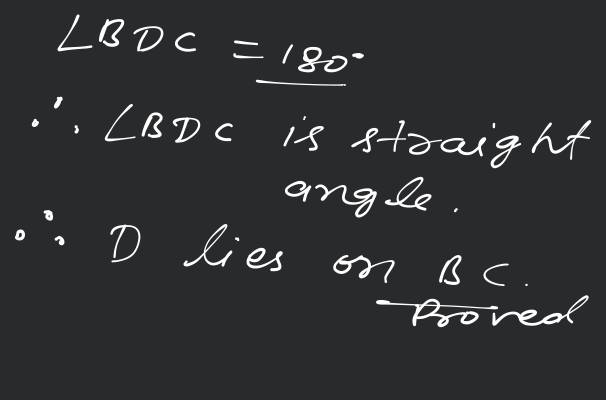 ∠BDC = 180°
∴ ∠BDC is straight
angle.
∴ D lies on BC.
Proved